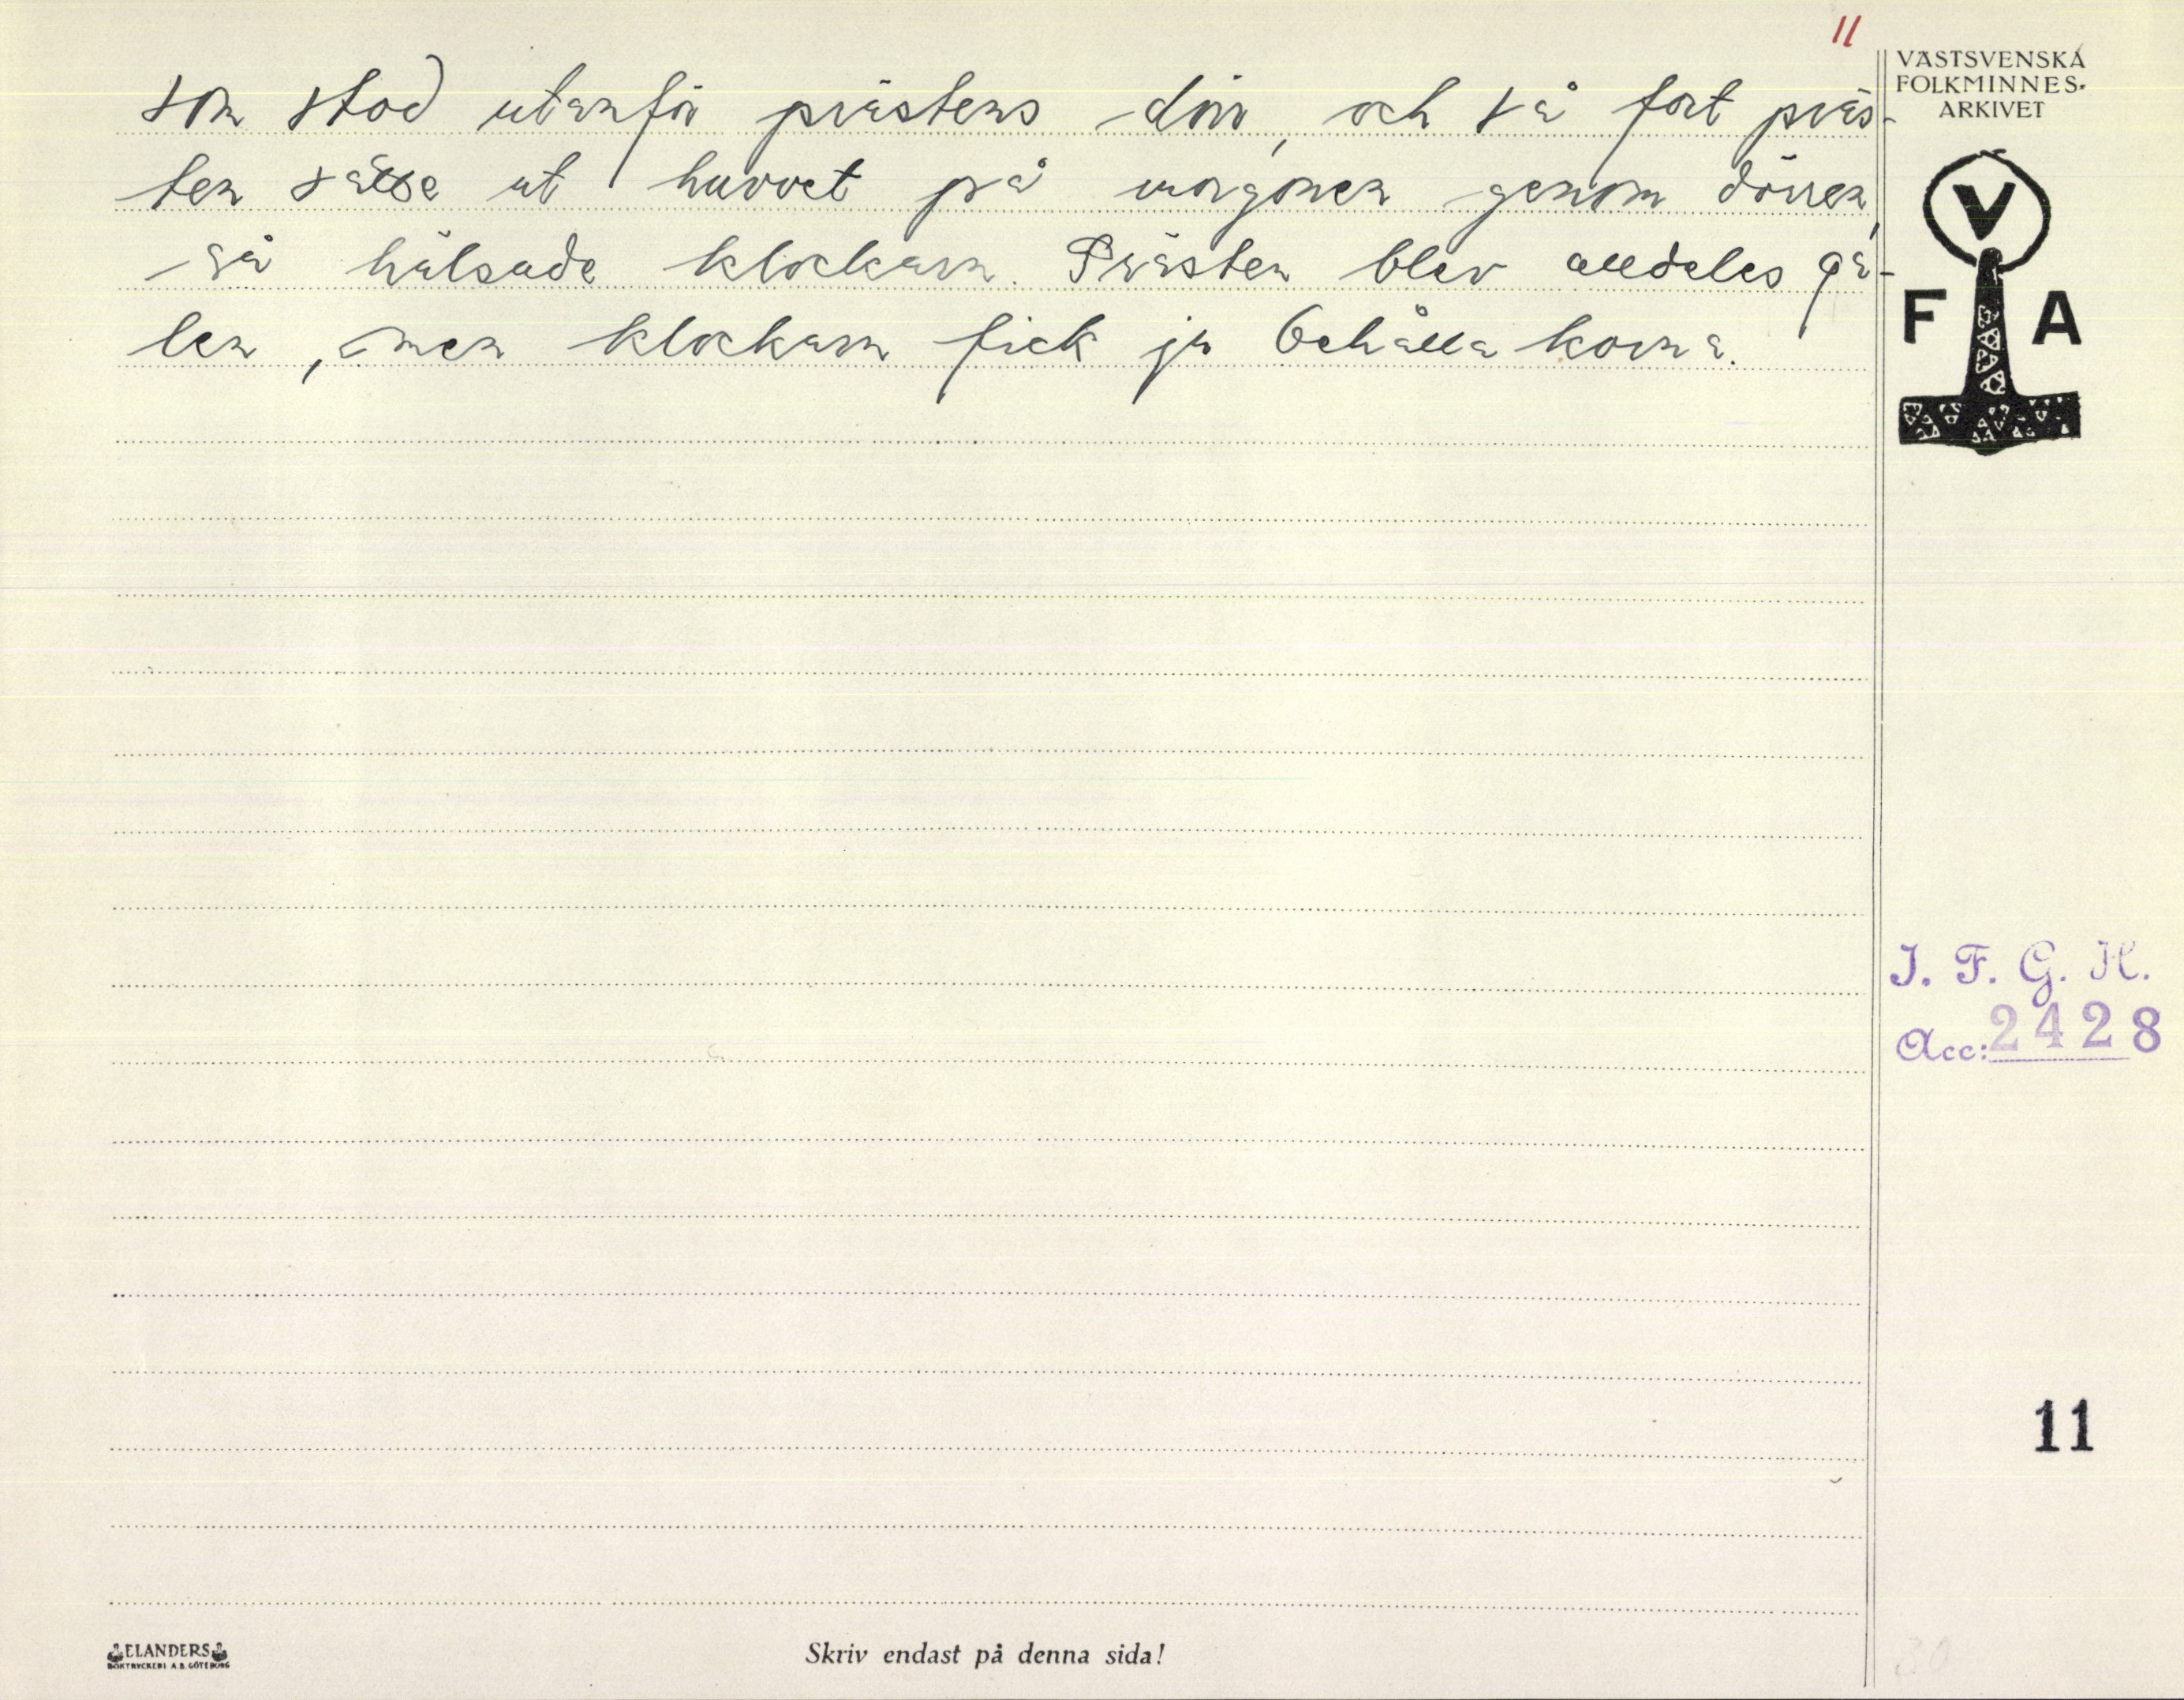 11
VÄSTSVENSKA
FOLKMINNES-
ARKIVET
V
F A
som stod utanför prästens dörr, och så fort präs-
ten satte ut huvvet på morgonen genom dörren,
så hälsade klockarn. Prästen blev alldeles ga-
len, men klockarn fick ju behålla korna.
I. F. G. H.
Acc: 2428
11
30
ELANDERS
BOKTRYCKERI A.B. GÖTEBORG
Skriv endast på denna sida!